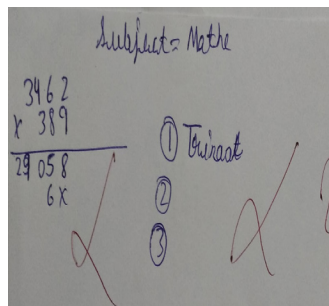 Subject = Mathe
3462
x 389
29058
6x
①
②
③